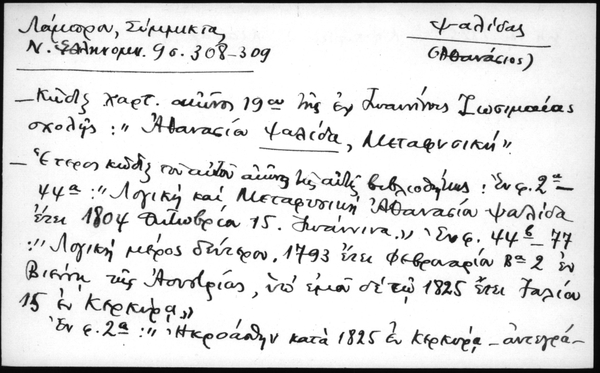 Λάμπρου, Σύμμικτα, Ψαλίδας
Ν. Ἑλληνομν. 9 σ. 308-309 (Ἀθανάσιος)
— Κῶδιξ χαρτ. αἰῶνος 19ου τῆς ἐν Ἰωαννίνοις Ζωσιμαίας
σχολῆς: „Ἀθανασίου Ψαλίδα, Μεταφυσική".
— Ἕτερος κῶδιξ τοῦ αὐτοῦ αἰῶνος τῆς αὐτῆς βιβλιοθήκης: Ἐν φ. 2α—
44α: „Λογική καί Μεταφυσική Ἀθανασίου Ψαλίδα
ἔτει 1804 Ὀκτωβρίου 15. Ἰωάννινα.„ Ἐν φ. 44β—77
:„Λογική μέρος δεύτερον. 1793 ἔτει Φεβρουαρίου 2 ἐν
Βιέννῃ τῆς Ἀουστρίας, ὑπ' ἐμοῦ δέ τῷ 1825 ἔτει Ἰουλίου
15 ἐν Κερκύρᾳ„
Ἐν φ. 2α: „Ἠκροάσθην κατά 1825 ἐν Κερκύρᾳ — ἀντεγρά-